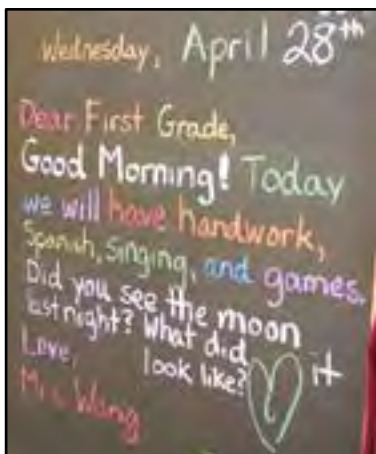 Wednesday, April 28th
Dear First Grade,
Good Morning! Today
we will have handwork,
Spanish, singing, and games.
Did you see the moon
last night? What did it
look like?
Love,
Wang